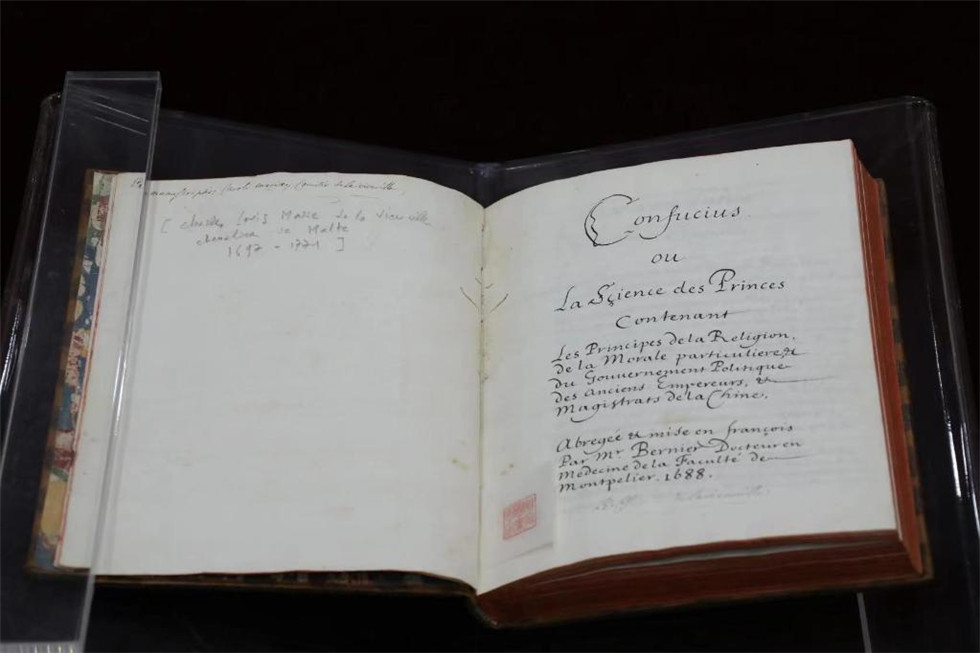 [ Charles Louis Marie de la Vieuville
chevalier de Malte
1697 - 1771 ]
Confucius
ou
La Sçience des Princes
Contenant
Les Principes de la Religion,
de la Morale particuliere, &
du Gouvernement Politique
des anciens Empereurs, &
Magistrats de la Chine.
Abregée & mise en françois
Par Mr. Bernier Docteur en
Médecine de la Faculté de
Montpelier. 1688.